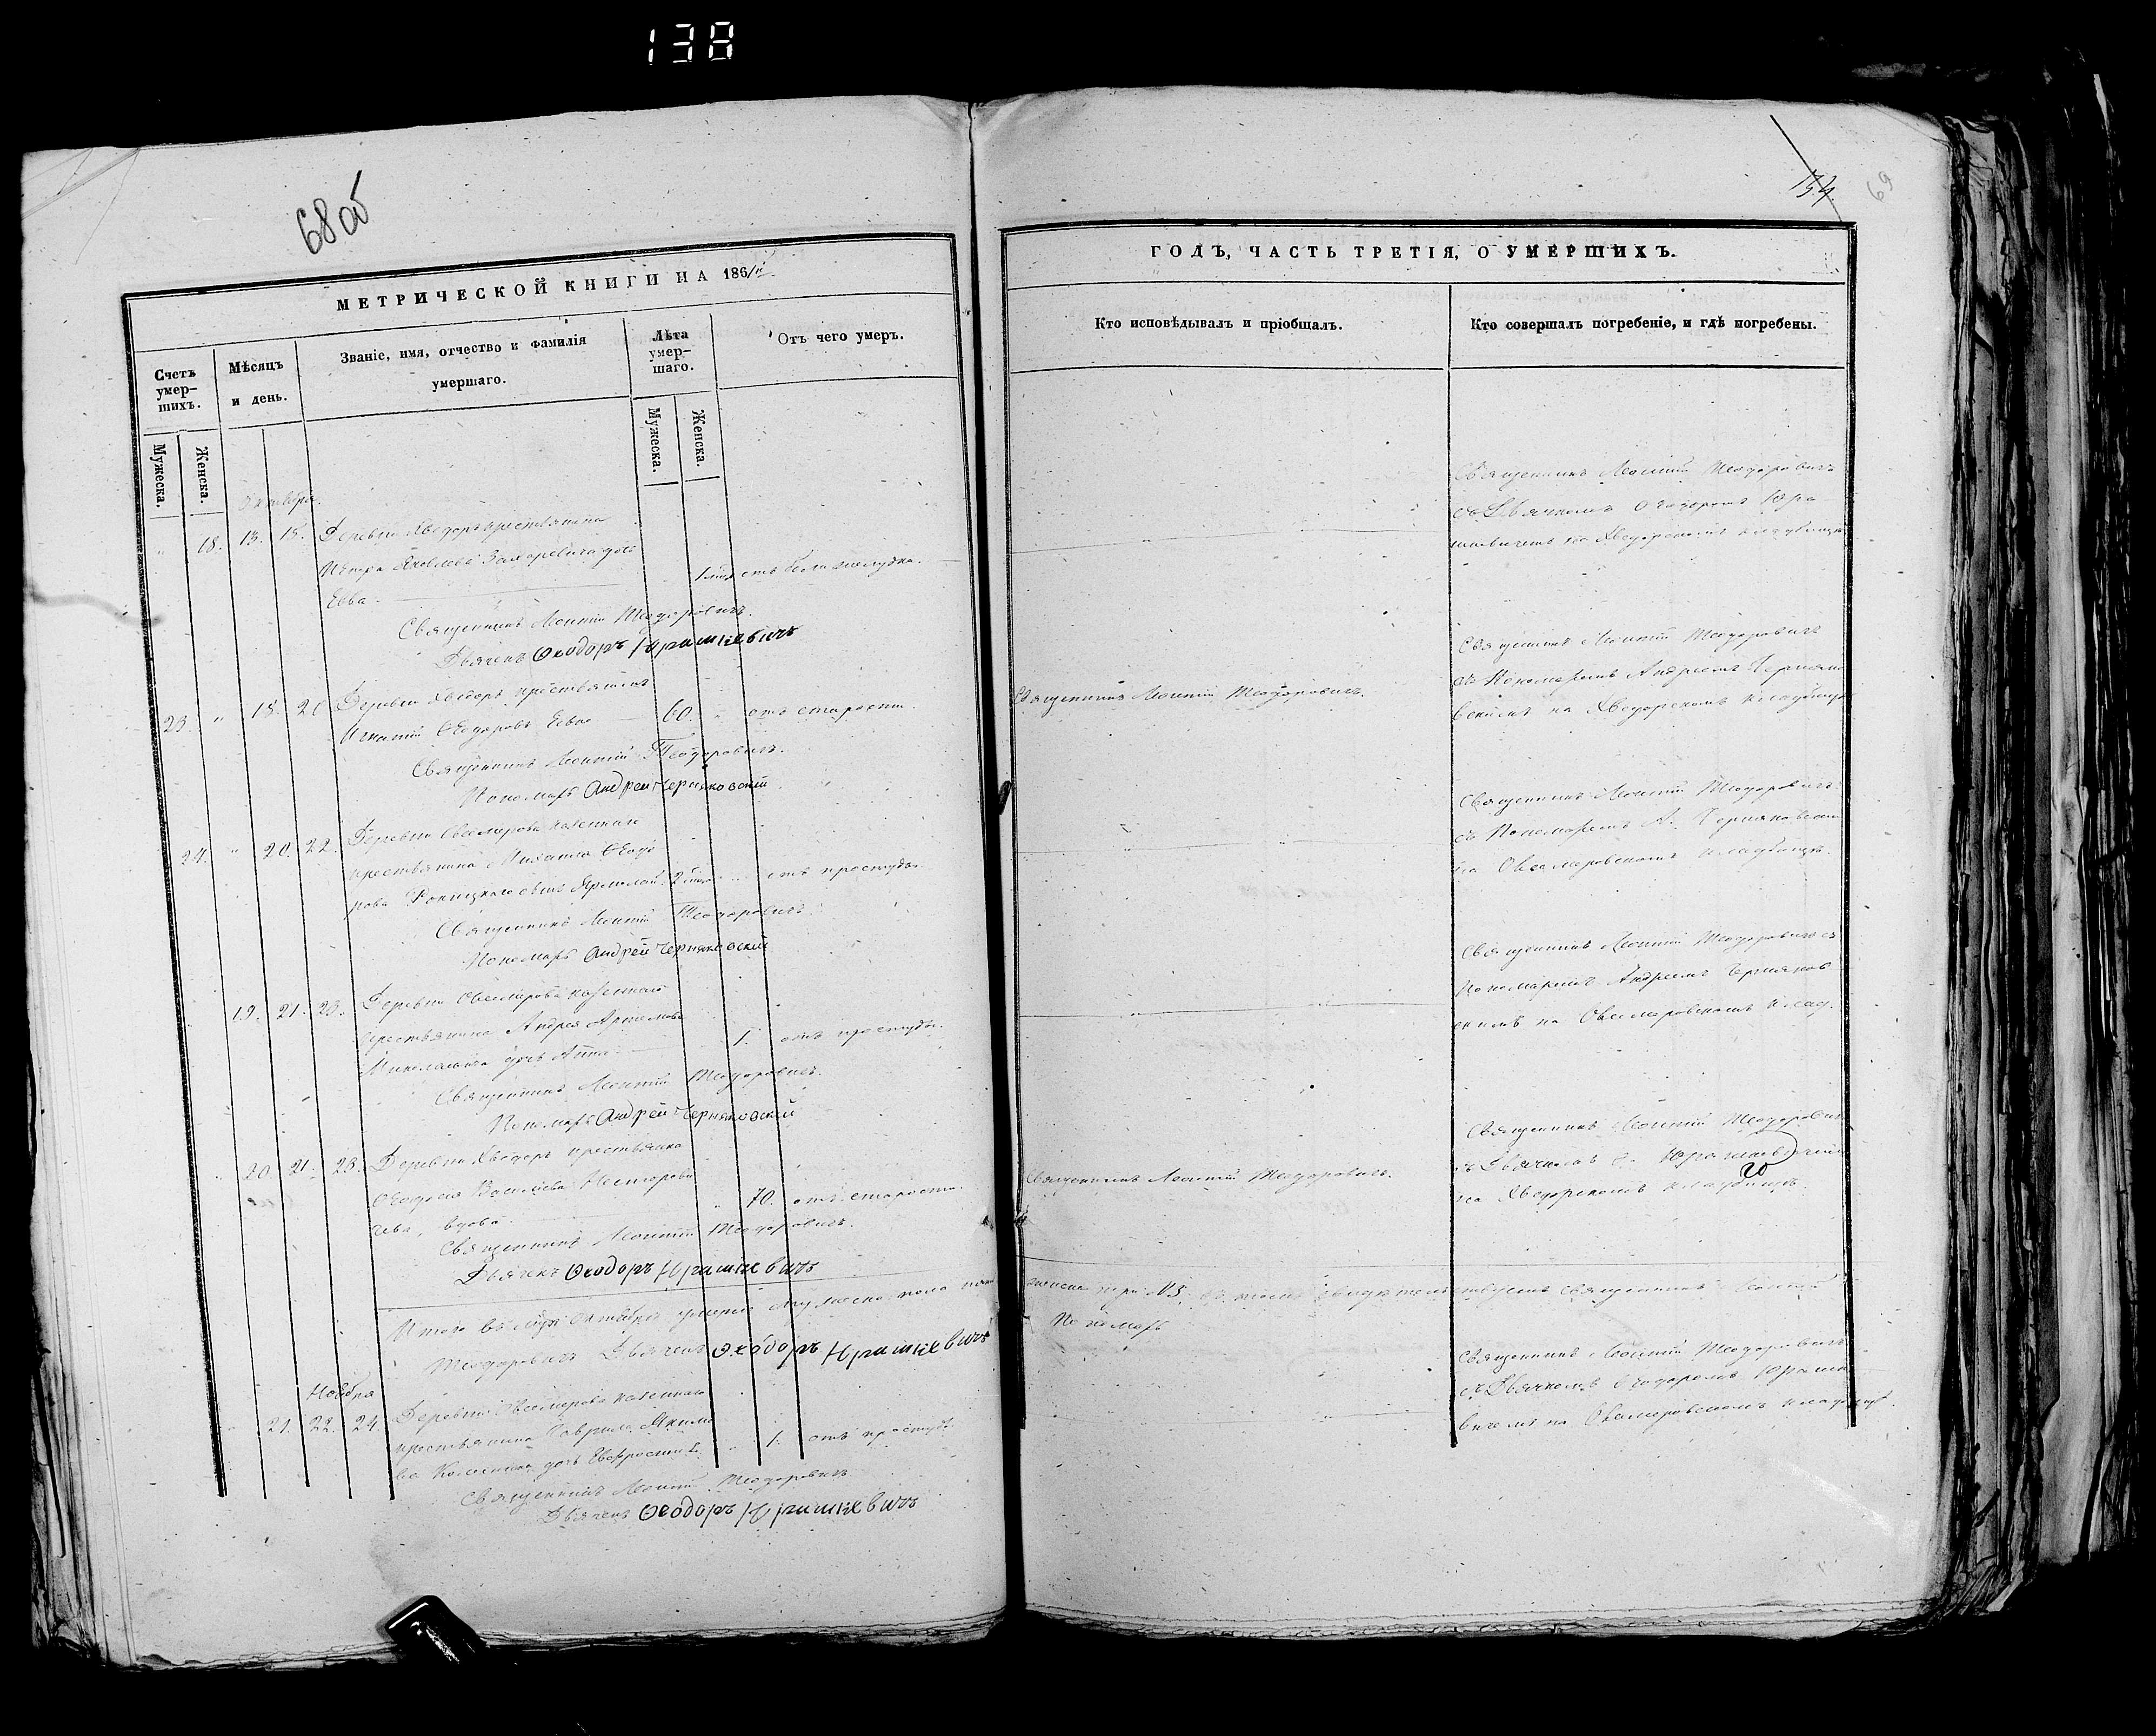 138
68 об
154.
69
МЕТРИЧЕСКОЙ КНИГИ НА 1861й
Счетъ умер-
шихъ.
Мѣсяцъ
и день.
Званіе, имя, отчество и фамилія
умершаго.
Лѣта
умер-
шаго.
Отъ чего умеръ.
Мужеска.
Женска.
Мужеска.
Женска.
Октября.
" 18. 13. 15. Деревни Хведоръ крестьянина
Петра Яковлева дочь
Евва.
Священникъ Леонтій Теодоровичъ.
Дьячекъ Ѳеодоръ Юрашкевичъ
23. " 18. 20 Деревни Хведоръ крестьянинъ
Игнатій Ѳеодоровъ 60. " отъ старости.
Священникъ Леонтій Теодоровичъ.
Пономарь Андрей Черняковскій
24. " 20. 22. Деревни Овсемирова казеннаго
крестьянина Михаила Ѳеодо
рова сынъ Ярмолай. " отъ простуды.
Священникъ Леонтій Теодоровичъ.
Пономарь Андрей Черняковскій
19. 21. 23. Деревни Овсемирова казеннаго
крестьянина Андрея Артемова
дочь Анна. 1. отъ простуды.
Священникъ Леонтій Теодоровичъ.
Пономарь Андрей Черняковскій
" 20. 21. 23. Деревни Хведоръ крестьянка
Васильева Несторови
чева, вдова. " 70. отъ старости.
Священникъ Леонтій Теодоровичъ.
Дьячекъ Ѳеодоръ Юрашкевичъ
Итого въ Октябрѣ умерло мужеска пола
Теодоровичъ Дьячекъ Ѳеодоръ Юрашкевичъ
Ноября
" 21. 22. 24. Деревни Овсемирова казеннаго
крестьянина Гаврила Якимо
ва дочь Евфросинія " 1. отъ простуды
Священникъ Леонтій Теодоровичъ
Дьячекъ Ѳеодоръ Юрашкевичъ
ГОДЪ, ЧАСТЬ ТРЕТІЯ, О УМЕРШИХЪ.
Кто исповѣдывалъ и пріобщалъ.
Кто совершалъ погребеніе, и гдѣ погребены.
Священникъ Леонтій Теодоровичъ
съ Дьячкомъ Ѳеодоромъ Юра
шкевичемъ на Хведорскомъ кладбищѣ
Священникъ Леонтій Теодоровичъ.
Священникъ Леонтій Теодоровичъ
съ Пономаремъ Андреемъ Черняко
вскимъ на Хведорскомъ кладбищѣ
Священникъ Леонтій Теодоровичъ
съ Пономаремъ А. Черняковскимъ
на Овсемировскомъ кладбищѣ.
Священникъ Леонтій Теодоровичъ съ
Пономаремъ Андреемъ Черняков
скимъ на Овсемировскомъ клад.
Священникъ Леонтій Теодоровичъ.
Священникъ Леонтій Теодоровичъ
съ Дьячкомъ
на Хведорскомъ кладбищѣ.
священникъ Леонтій
Пономарь
Священникъ Леонтій Теодоровичъ
съ Дьячкомъ Ѳеодоромъ Юрашке
вичемъ на Овсемировскомъ кладбищѣ.